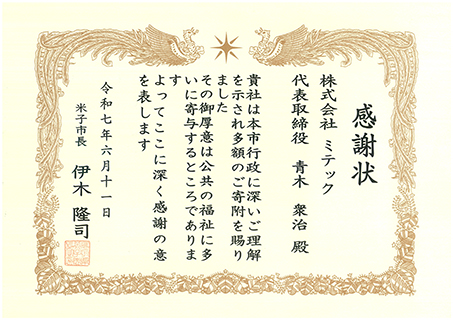 感謝状
株式会社 ミテック
代表取締役 青木 衆治 殿
貴社は本市行政に深いご理解
を示され多額のご寄附を賜り
ました
その御厚意は公共の福祉に多
いに寄与するところでありま
す
よってここに深く感謝の意
を表します
令和七年六月十一日
米子市長 伊木 隆司